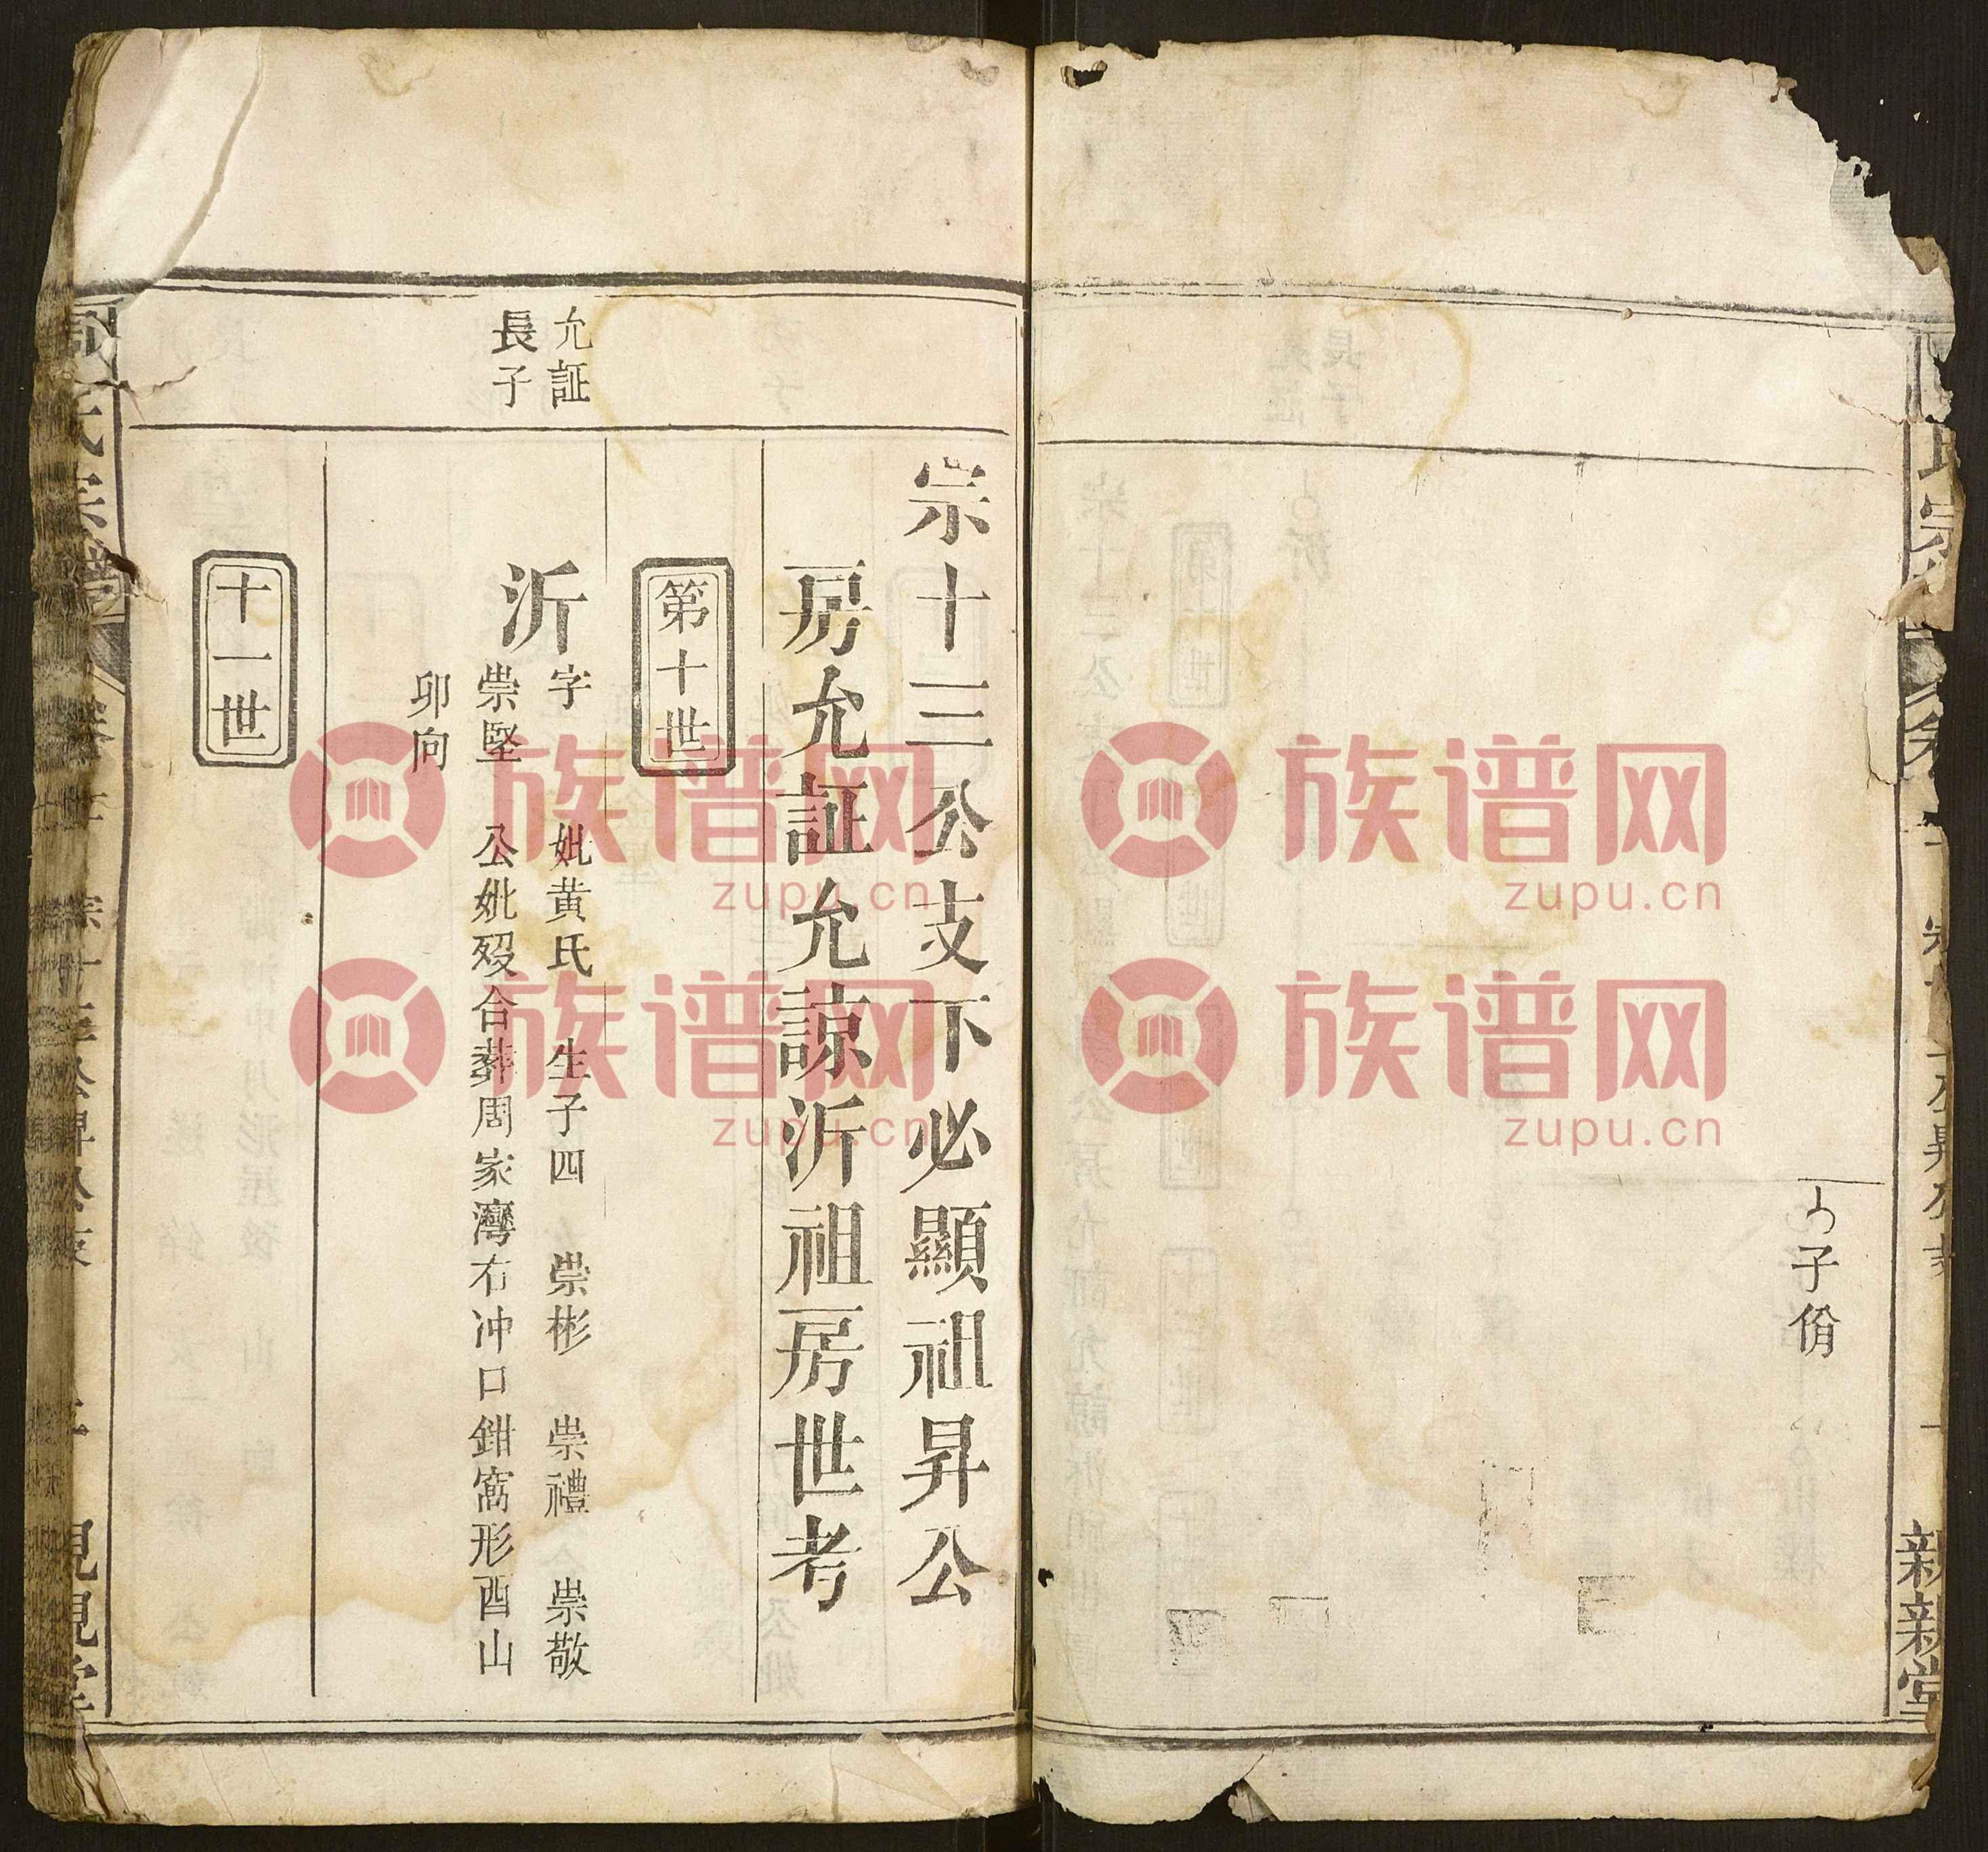 子佾
親親堂
宗十三公支下必顯祖昇公
房允証允諒沂祖房世考
第十世
允証
長子
沂
字 妣黄氏 生子四 崇彬 崇禮 崇敬
崇堅 公妣殁合葬周家灣右冲口鉗窩形酉山
卯向
十一世
族谱网
zupu.cn
族谱网
zupu.cn
族谱网
zupu.cn
族谱网
zupu.cn